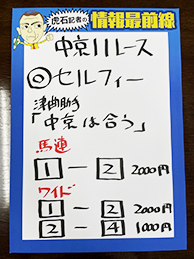 虎石記者の
情報最前線
中京11レース
◎セルフィー
津曲助手
「中京は合う」
馬連
1-2 2000円
ワイド
1-2 2000円
2-4 1000円